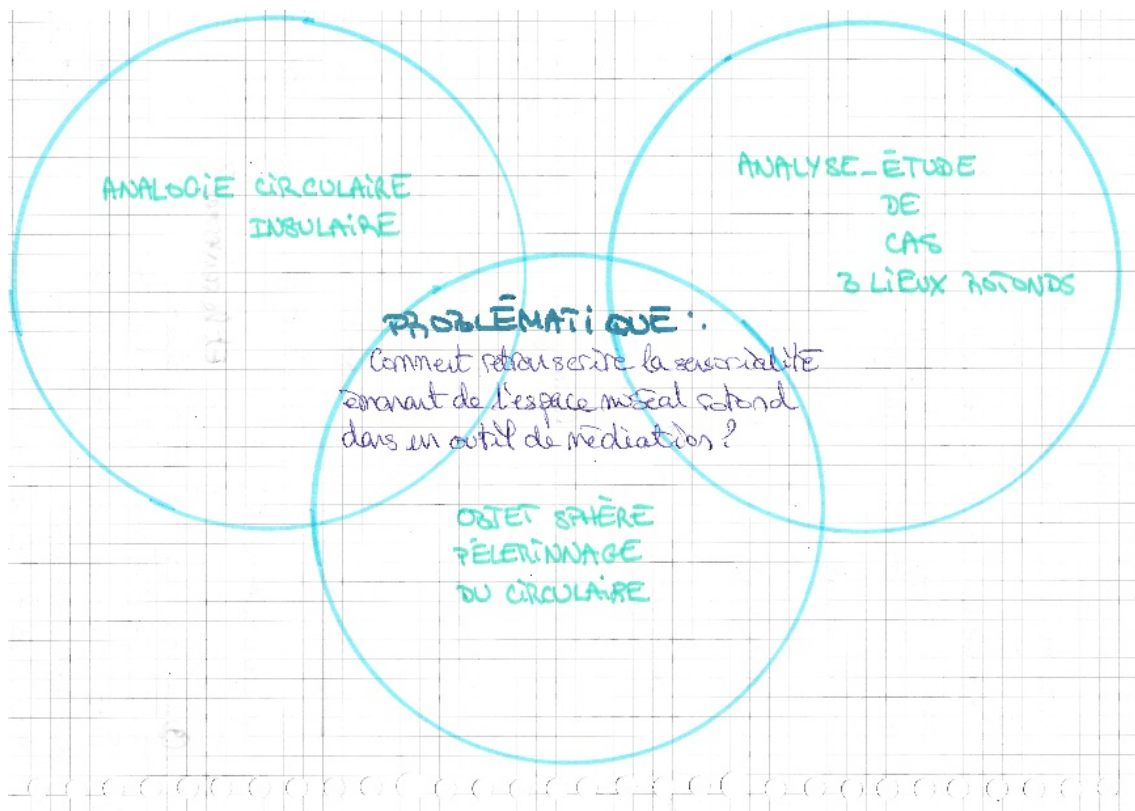 ANALOGIE CIRCULAIRE
INSULAIRE
ANALYSE_ÉTUDE
DE
CAS
3 LIEUX ROTONDS
PROBLÉMATIQUE :
Comment retranscrire la sensorialité
émanant de l'espace muséal rotond
dans un outil de médiation ?
OBJET SPHÈRE
PÉLERINNAGE
DU CIRCULAIRE